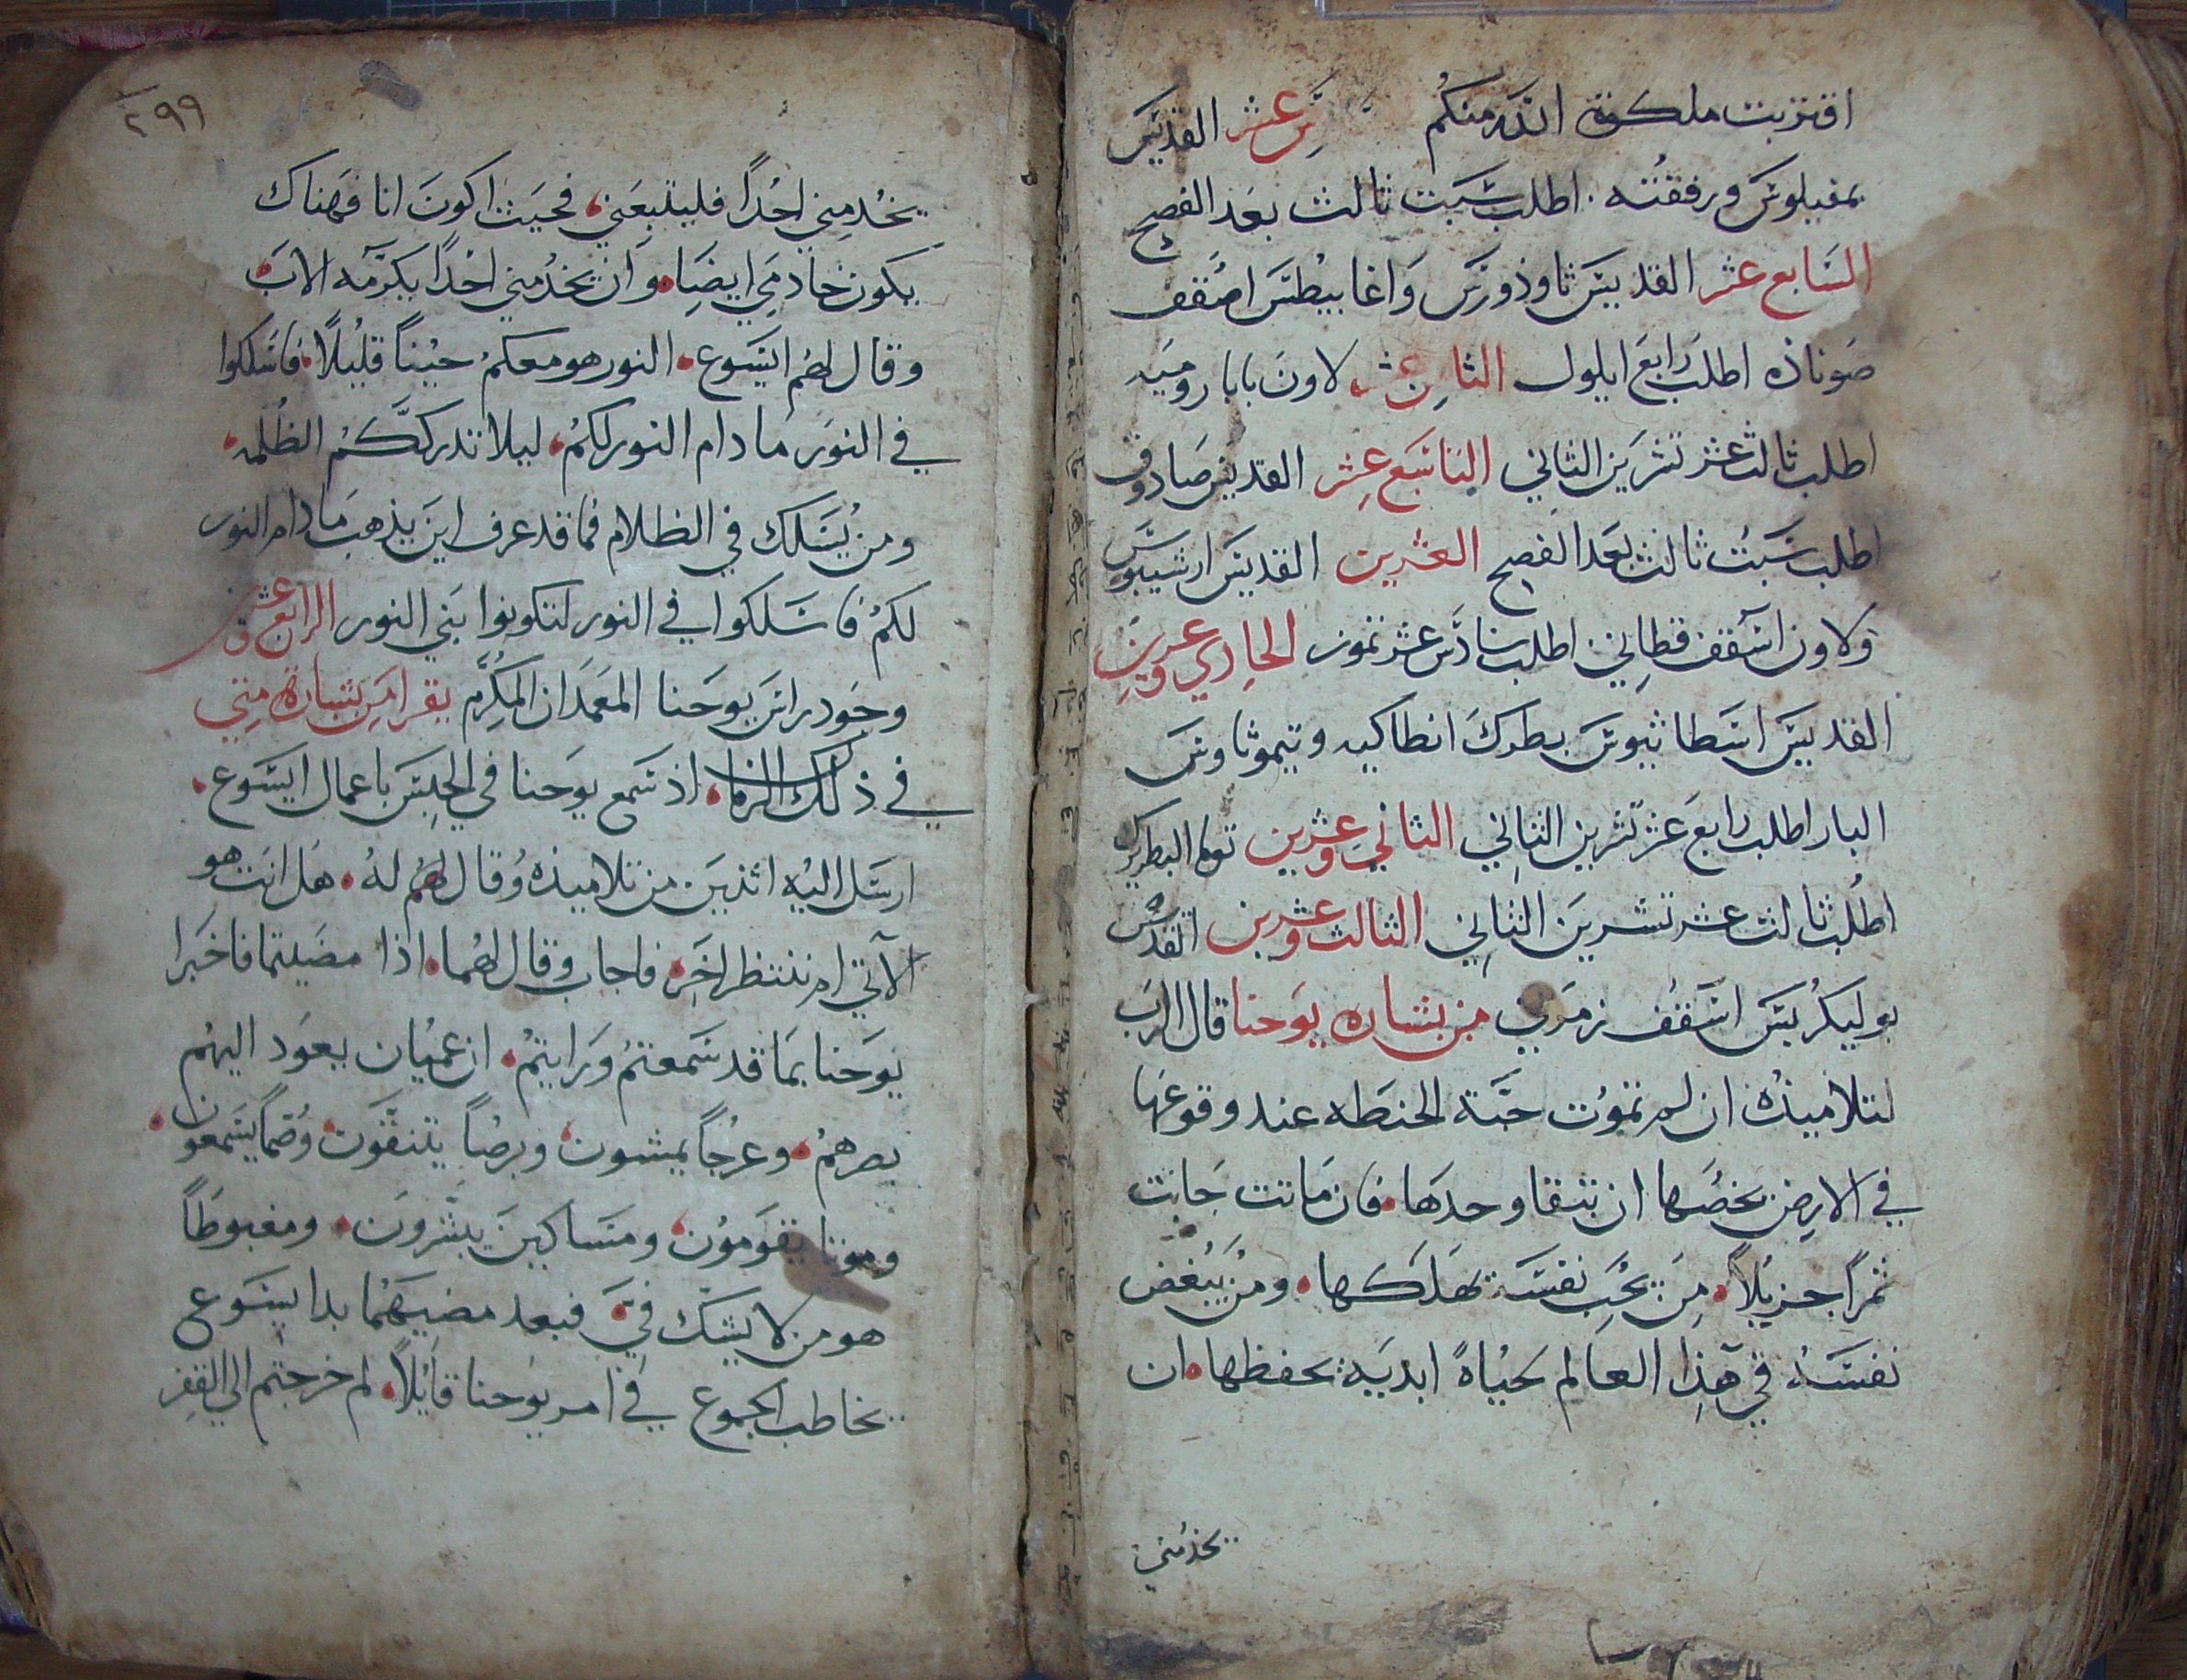 اقتربت ملكوة الله منكم عشر القديس
بمفيلوس ورفقته اطلب سبت ثالث بعد الفصح
السابع عشر القديس ثاوذورس واغابيطس اسقف
صوناذه اطلب رابع ايلول الثامن عشر لاون بابا روميه
اطلب ثالث عشر تشرين الثاني التاسع عشر القديس صادوق
اطلب سبت ثالث بعد الفصح العشرين القديس ارشيبوس
ولاون اسقف قطاني اطلب سادس عشر تموز الحادي وعشرين
القديس اسطاثيوس بطرك انطاكيه وتيموثاوس
البار اطلب رابع عشر تشرين الثاني الثاني وعشرين توما البطريرك
اطلب ثالث عشر تشرين الثاني الثالث وعشرين القديس
بوليكربس اسقف زمرني من بشاره يوحنا قال الرب
لتلاميذه ان لم تموت حبة الحنطه عند وقوعها
في الارض يخصها ان تبقا وحدها فان ماتت جابت
ثمراً جزيلاً من يحب نفسه يهلكها ومن يبغض
نفسه في هذا العالم لحياة ابديه يحفظها ان
يخدمني
٢٩٩
يخدمني احداً فليتبعني فحيث اكون انا فهناك
يكون خادمي ايضا وان يخدمني احداً يكرمه الاب
وقال لهم ايسوع النور هو معكم حيناً قليلاً فاسلكوا
في النور ما دام النور لكم ليلا تدرككم الظلمه
ومن يسلك في الظلام فما قد عرف اين يذهب ما دام النور
لكم فاسلكوا في النور لتكونوا بني النور الرابع وعشرين
وجود راس يوحنا المعمدان المكرم يقرا من بشارة متي
في ذلك الزمان اذ سمع يوحنا في الحبس باعمال ايسوع
ارسل اليه اثنين من تلاميذه وقال لهم له هل انت هو
الآتي ام ننتظر اخر فاجاب وقال لهما اذا مضيتما فاخبرا
يوحنا بما قد سمعتم ورايتم ان عميان يعود اليهم
بصرهم وعرجاً يمشون وبرصاً يتنقون وصماً يسمعون
وموتا يقومون ومساكين يبشرون ومغبوطاً
هو من لا يشك في فبعد مضيهما بدا يسوع
يخاطب الجموع في امر يوحنا قايلاً لم خرجتم الي القفر